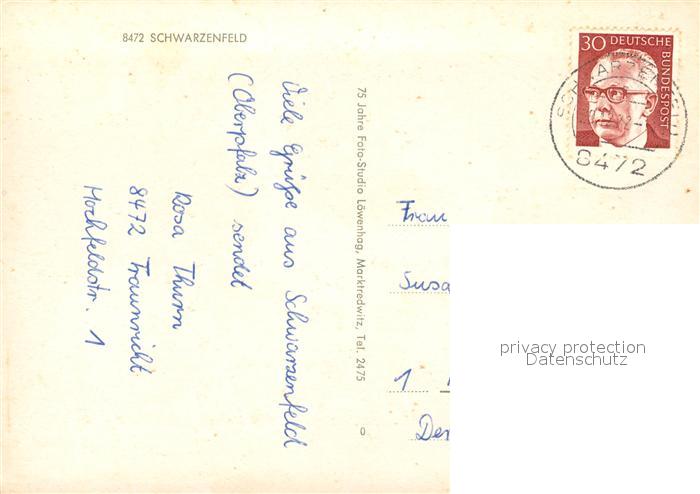 8472 SCHWARZENFELD
Viele Grüße aus Schwarzenfeld
(Oberpfalz) sendet
Rosa Thurn
8472 Traunricht
Hochfeldstr. 1
75 Jahre Foto-Studio Löwenhag, Marktredwitz, Tel. 2475
0
30 DEUTSCHE
BUNDESPOST
8472
Frau
Susa
1
privacy protection
Datenschutz